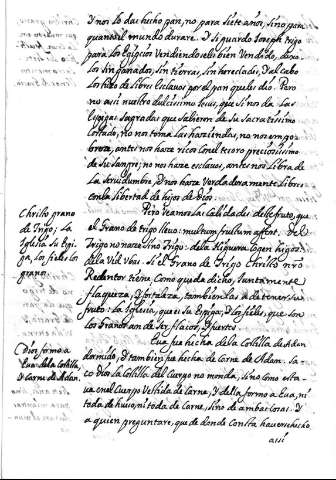 Y nos lo da hecho pan, no para siete años, sino para
quanto el mundo durare. Y si guardo Joseph trigo
para los Egipcios vendiendoseles bien vendido, dexo
los sin ganados, sin tierras, sin heredades, y al cabo
los hizo de libres esclavos por el pan que les dio. Pero
no assi nuestro dulcissimo Jesus, que si nos da las
Espigas sagradas que salieron de su sacratissimo
Costado, no nos toma las haziendas, no nos empo-
brece, antes nos haze ricos con el tesoro preciosissimo
de su sangre; no nos haze esclavos, antes nos libra de
la servidumbre, y nos haze verdaderamente libres
con la libertad de hijos de Dios.
Christo grano
de trigo, La
Iglesia su Espi-
ga, los fieles los
granos.
Pero veamos las calidades del fruto, que
el Grano de trigo lleuo: multum fructum affert. Del
Trigo no naze sino Trigo: de la Higuera cogen higos:
de la Vid Vbas. Si el Grano de Trigo Christo nro
Redentor tiene, como queda dicho, juntamente
flaqueza, y fortaleza, tambien las ha de tener su
fruto: la Iglesia, que es su Espiga, y los fieles, que son
los Granos han de ser flacos, y fuertes.
Dios formo a
Eua de la Costilla,
y carne de Adan.
Eua fue hecha de la Costilla de Adan
dormido, y tambien fue hecha de Carne de Adan. Sa-
co Dios la Costilla del Cuerpo no monda, sino como esta-
ua en el Cuerpo vestida de carne, y della formo a Eua, ni
toda de hueso, ni toda de carne, sino de ambas cosas. Y
a quien preguntare, que de donde consta hauer sido
assi